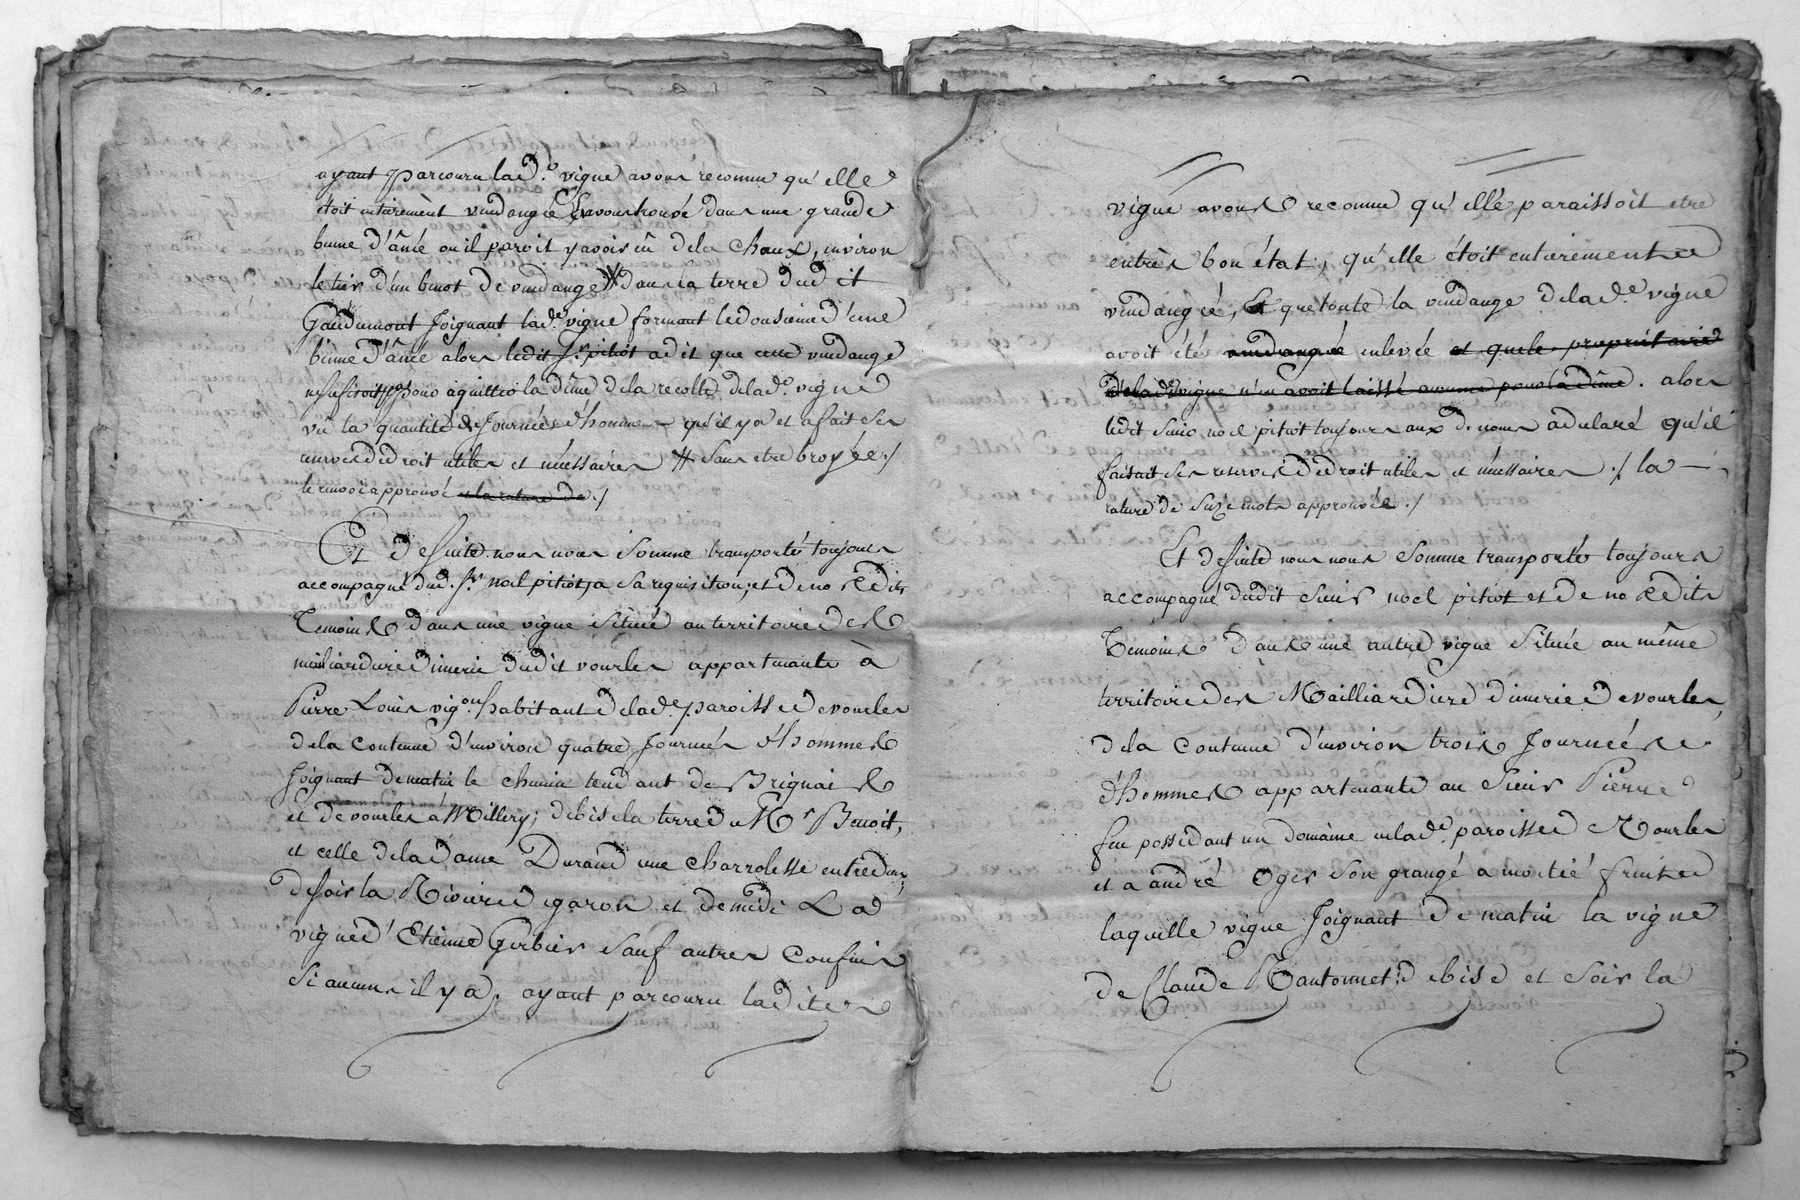 ayant parcouru lad.e vigne avons reconnu qu'elle
étoit entièrement vendangée & avons trouvé dans une grande
benne d'ânée ou il paroit y avoir eû dela chaux, environ
le tier d'un benot de vendange # dans la terre dudit
Gaudumont joignant lad.e vigne formant le douzieme d'une
benne d'ânée alors ledit S.r pitiot a dit que cette vendange
ne sufisoit pas pour aquitter la dîme dela recolte delad.e vigne
vû la quantité de journées d'hommes qu'il y a et a fait ses
reserves de droit utiles et nécessaires # sans etre broyée ./
le renvoi approuvé et la rature de ./
Et de suitte nous nous somme transporté toujours
accompagné dud. S.r noel pitiot, a sa requisition, et de nosdits
Temoins dans une vigne située au territoire des
mailiardiere dimerie dudit vourles appartenante à
Pierre Louis vig.on habitant delad.e paroisse de vourles
dela contenue d'environ quatre journées d'hommes
joignant de matin le chemin tendant de Brignais
et de vourles à Millery; debise la terre de M.r Benoit,
et celle dela dame Durand une charrolesse entredeux,
de soir la Riviere garon et de midi La
vigne d'Etienne Gerbier sauf autres confins
si aucuns il y a, ayant parcouru laditte
vigne avons reconnu qu'elle paraissoit etre
en très bon état, qu'elle étoit entierement
vendangée, Et que toute la vendange delad.e vigne
avoit étés vendangée enlevée et que le propriétaire
de lad.e vigne n'en avoit laissé aucune pour la dîme. alors
ledit sieur noel pitiot toujours aux de nous a déclaré qu'il
faisait ses reserves de droit utiles et nécessaires ./ la
rature de seize mots approuvée ./
Et de suite nous nous somme transporté toujours
accompagné dudit sieur noel pitiot et de nosdits
Temoins dans une autre vigne située au même
territoire des Mailliardiere dimerie de vourles,
dela contenue d'environ trois journées
d'hommes appartenante au sieur Pierre
feu possedant un domaine en lad.e paroisse de Vourles
et a andré Oger son grangé a moitié fruits
laquelle vigne joignant de matin la vigne
de Claude Nantonnet; debise et soir la